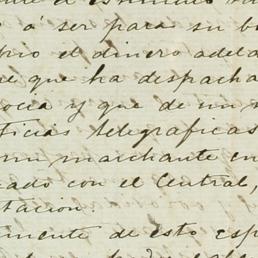 á ser para su b
el dinero adela
que ha despacha
oca y que de un
ticias telegraficas
un marchante en
ado con el Central,
tacion.
mente de esto esp